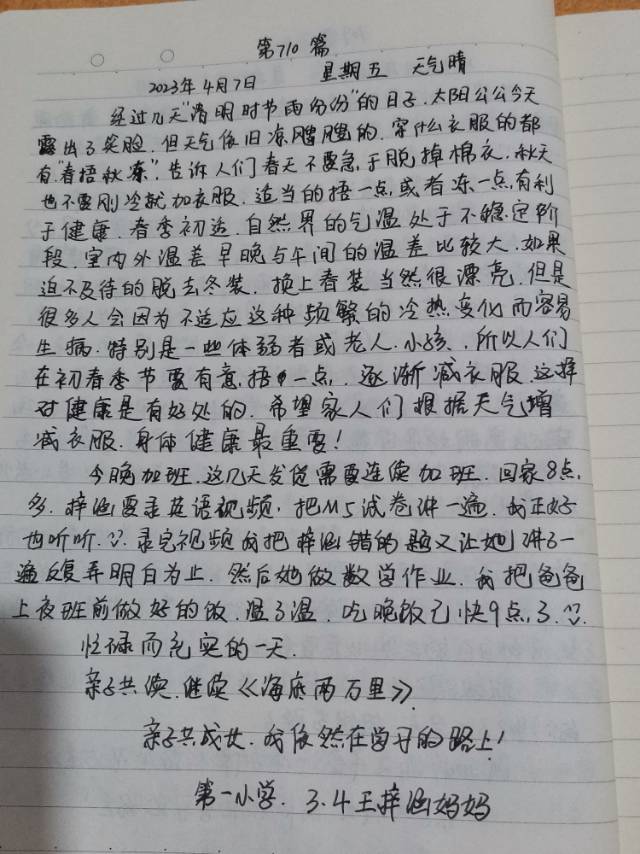 第710篇
2023年4月7日 星期五 天气晴
经过几天"清明时节雨纷纷"的日子.太阳公公今天
露出了笑脸.但天气依旧凉飕飕的.穿什么衣服的都
有."春捂秋冻".告诉人们春天不要急于脱掉棉衣.秋天
也不要刚冷就加衣服.适当的捂一点,或者冻一点,有利
于健康.春季初选.自然界的气温处于不稳定阶
段.室内外温差早晚与午间的温差比较大.如果
迫不及待的脱去冬装.换上春装当然很漂亮.但是
很多人会因为不适应这种频繁的冷热变化而容易
生病.特别是一些体弱者或老人.小孩.所以人们
在初春季节要有意捂一点,逐渐减衣服.这样
对健康是有好处的.希望家人们根据天气增
减衣服.身体健康最重要!
今晚加班.这几天发货需要连续加班.回家8点,
多.梓涵要录英语视频.把M5试卷讲一遍.我正好
也听听.录完视频我把梓涵错的题又让她讲了一
遍反复弄明白为止.然后她做数学作业.我把爸爸
上夜班前做好的饭.温了温.吃晚饭已快9点,了.
忙碌而充实的一天.
亲子共读.继续《海底两万里》.
亲子共成长.我依然在学习的路上!
第一小学.3.4王梓涵妈妈